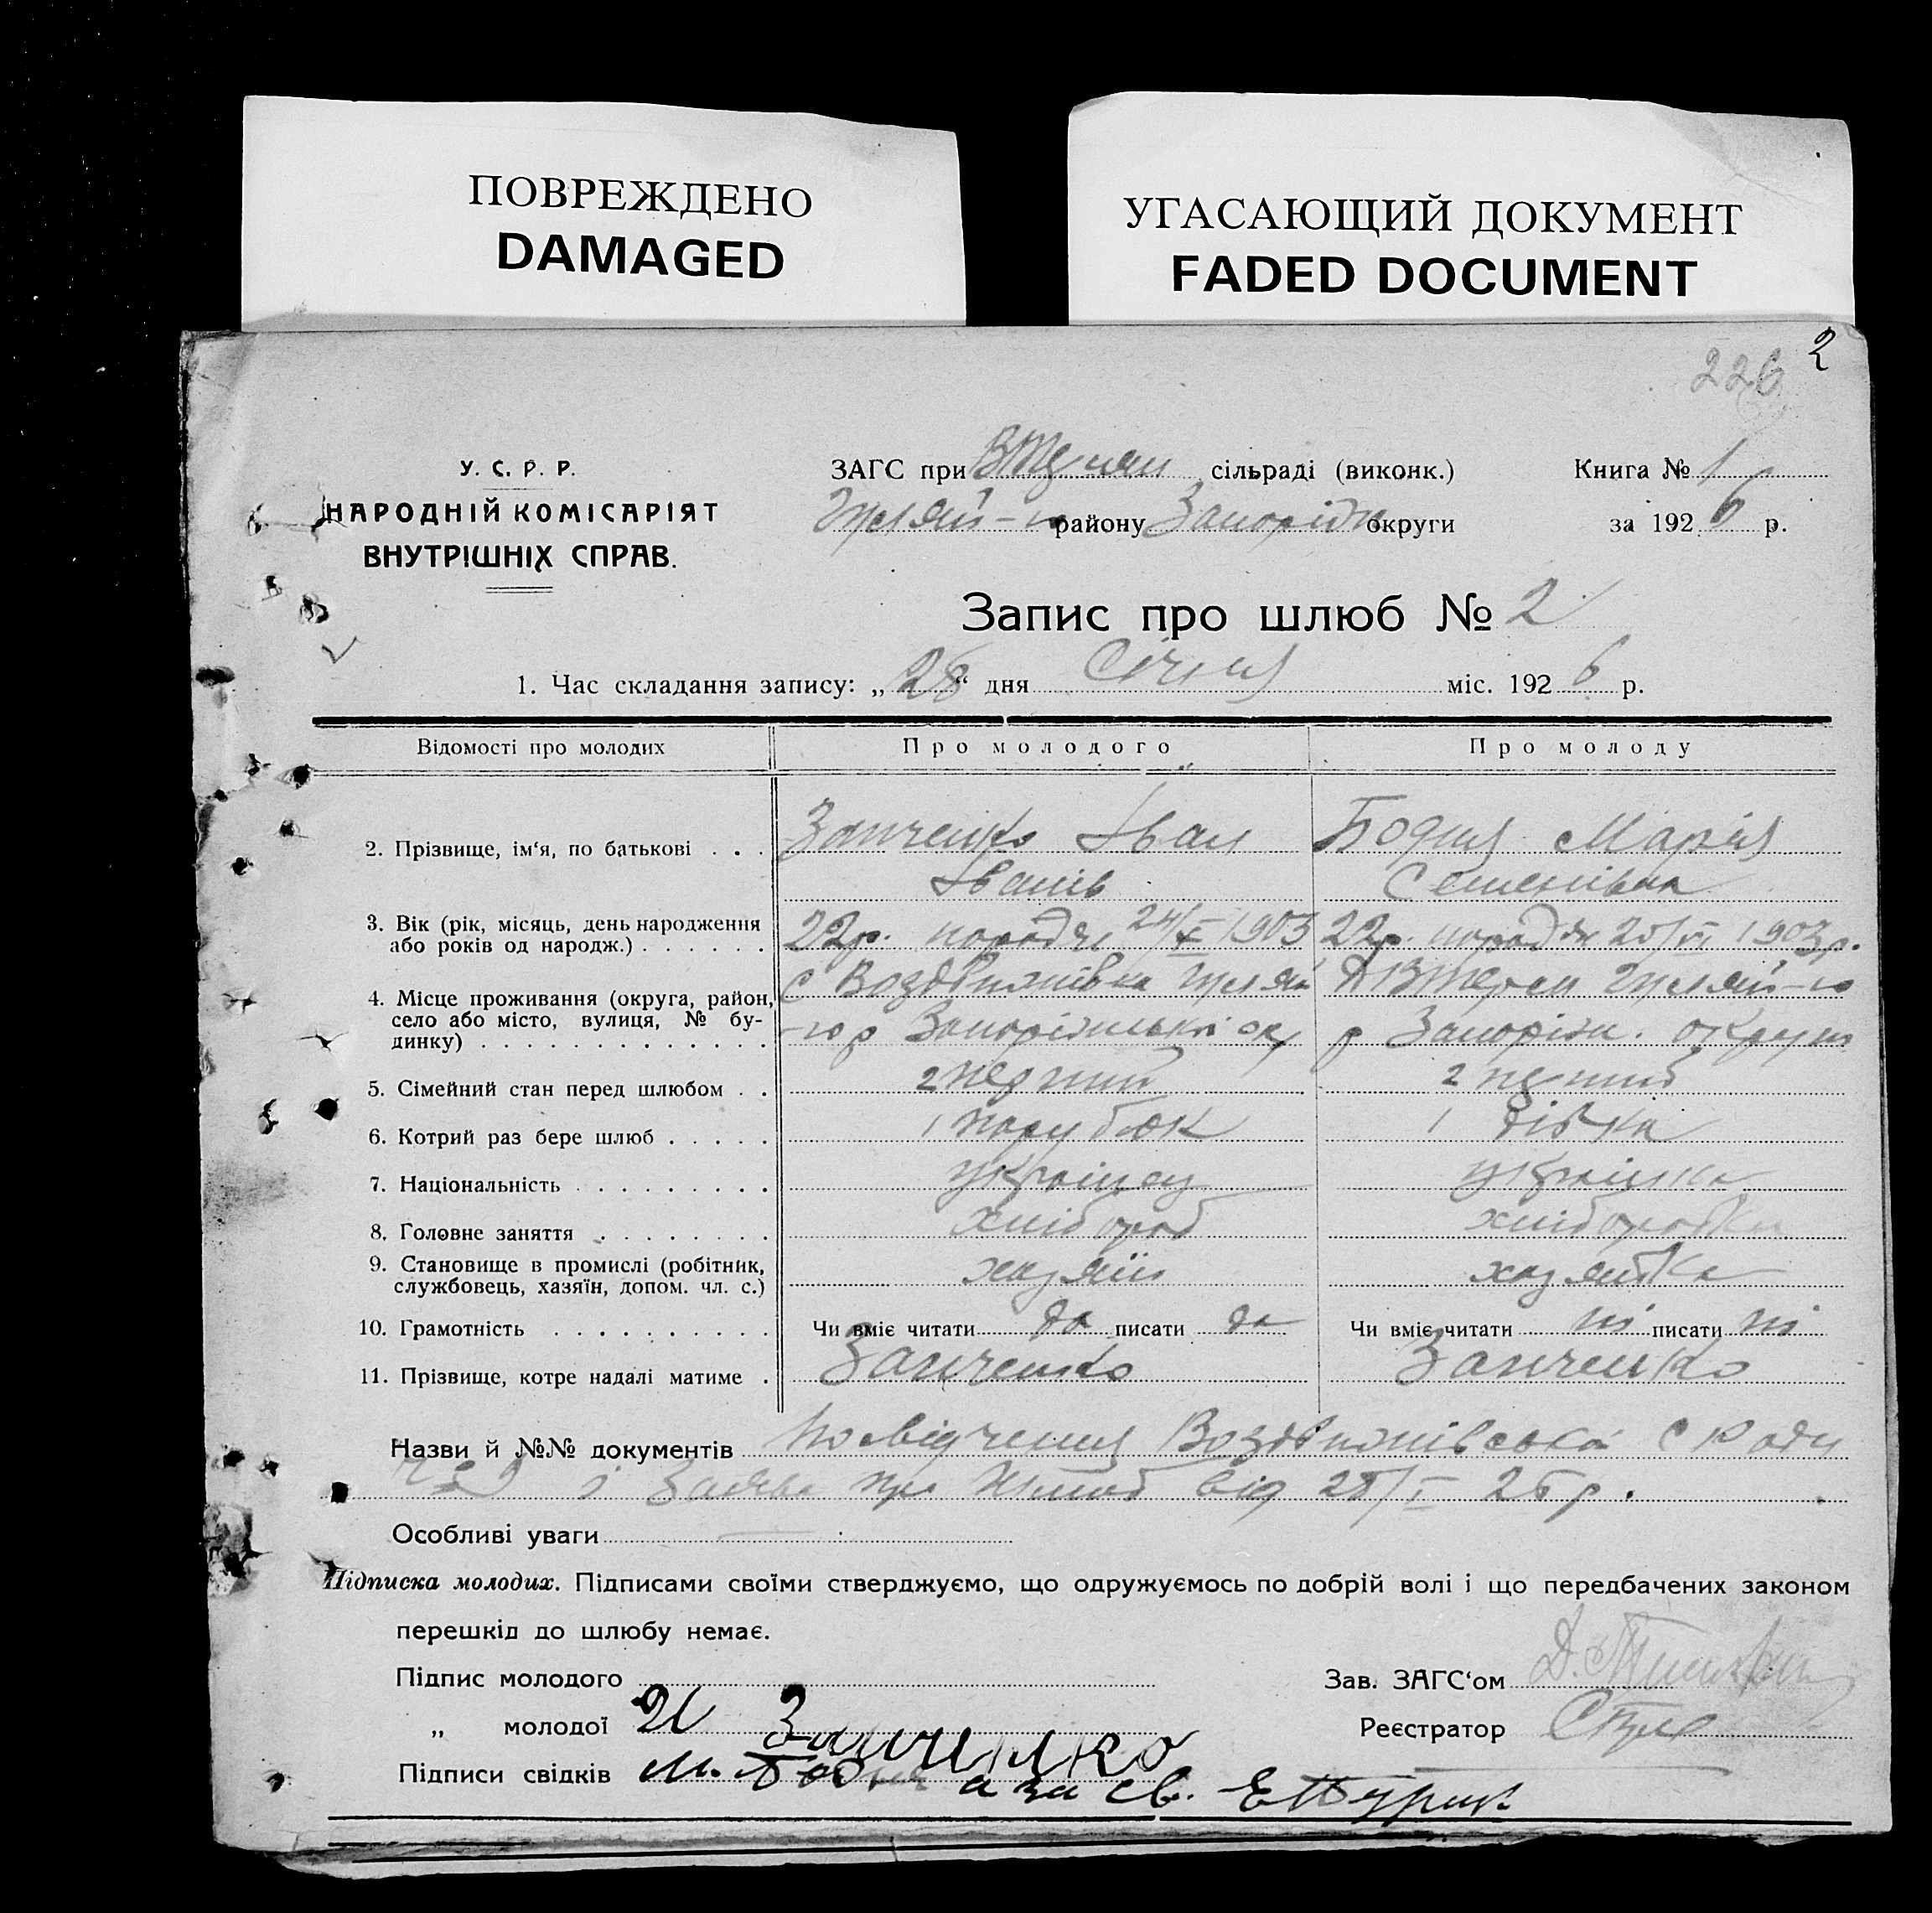 ПОВРЕЖДЕНО
DAMAGED
УГАСАЮЩИЙ ДОКУМЕНТ
FADED DOCUMENT
2
226
У. С. Р. Р.
НАРОДНІЙ КОМІСАРІЯТ
ВНУТРІШНІХ СПРАВ.
ЗАГС при сільраді (виконк.)
району Запоріж округи
Книга № 1
за 1926 р.
Запис про шлюб № 2
1. Час складання запису: „28“ дня Січня міс. 1926 р.
Відомості про молодих Про молодого Про молоду
2. Прізвище, ім'я, по батькові . . . Занченко Іван Бодня Марія
Іванів Семенівна
3. Вік (рік, місяць, день народження
або років од народж.) . . . . . . 22р. 1903 22р. 1903р.
4. Місце проживання (округа, район,
село або місто, вулиця, № бу-
динку) . . . . . . . . . . . . . с Воздвижівка
р Запоріж. округи
5. Сімейний стан перед шлюбом . . 2 2
6. Котрий раз бере шлюб . . . . . 1 парубок 1 дівка
7. Національність . . . . . . . . . українец українка
8. Головне заняття . . . . . . . . хлібороб хліборобка
9. Становище в промислі (робітник,
службовець, хазяїн, допом. чл. с.) хазяїн хазяйка
10. Грамотність . . . . . . . . . . Чи вміє читати да писати да Чи вміє читати ні писати ні
11. Прізвище, котре надалі матиме . Занченко Занченко
Назви й №№ документів Посвідчення
і Заява про шлюб від 28/I 26р.
Особливі уваги
Підписка молодих. Підписами своїми стверджуємо, що одружуємось по добрій волі і що передбачених законом
перешкід до шлюбу немає.
Підпис молодого
„ молодої И Занченко
Підписи свідків М. Бодня а за св.
Зав. ЗАГС'ом
Реєстратор